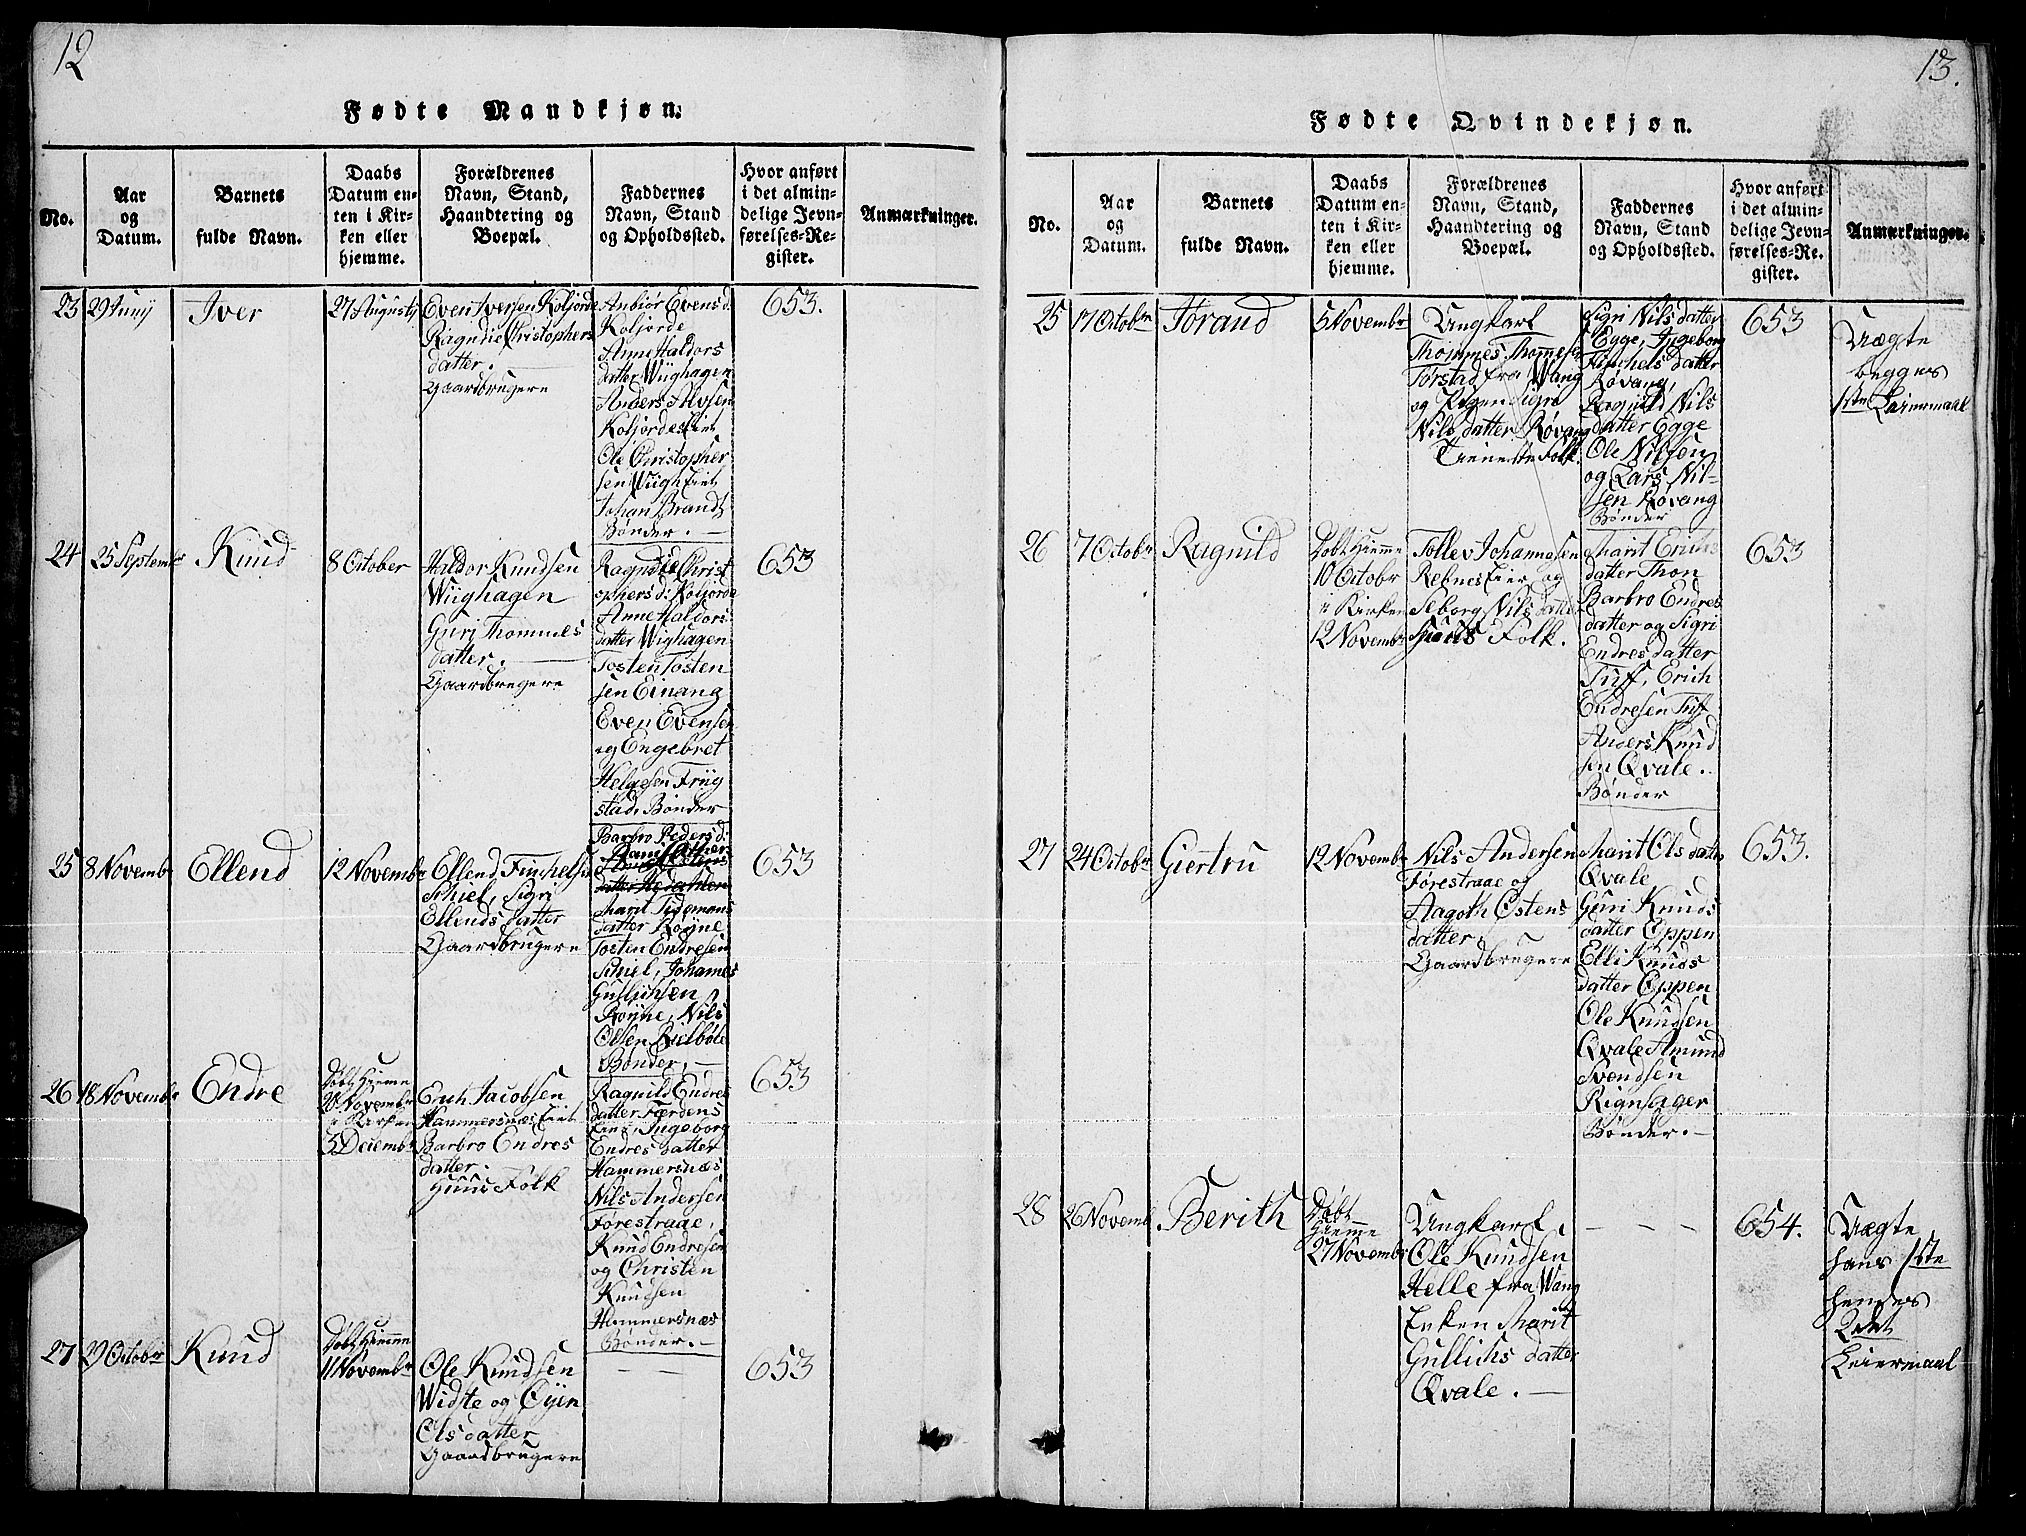 12
Fødte Mandkjøn.
No.
Aar
og
Datum.
Barnets
fulde Navn.
Daabs
Datum en-
ten i Kir-
ken eller
hjemme.
Forældrenes
Navn, Stand,
Haandtering og
Boepæl.
Faddernes
Navn, Stand
og Opholdssted.
Hvor anført
i det almin-
delige Jevn-
førelses-Re-
gister.
Anmærkninger.
23
29 Junij
Iver
27 Augustj
Even Iversen Koljorde
Ragndie Christophers
datter.
Gaardbrugere
Anbiør Evens d:
Koljorde
Anne Haldors
datter Wiighagen
Anders
Koljordes Eiet
Ole Christopher
sen Wiigh Eiet
Johan Brandt
Bønder.
653.
24
25 Septembr
Knud
8 October
Haldor Knudsen
Wiighagen
Guri Thommes
datter.
Gaardbrugere
Ragndie Christ
ophers d: Koljorde
Anne Haldors
datter Wighagen
Tosten Tosten
sen Einang
Even Evensen
og Engebret
Helgesen Friig
stad, Bønder
653
25
8 Novembr
Ellend
12 Novembr
Ellend Finchelsen
Schiel, Sigri
Ellends datter
Gaardbrugere
Barbro Peders d:
Marit Tidemans
datter Røÿne
Tosten Endresen
Schiel, Johannes
Gullichsen
Røÿne, Nils
Olsen Bielbøle
Bønder.
653
26
18 Novembr
Endre
Døbt Hieme
20 Novembr
i Kirken
5 Decembr
Erich Jacobsen
Hammersnæs Eiet
Barbro Endres
datter.
Huus Folk
Ragnild Endres
datter Færdens
Eiet, Ingeborg
Endres datter
Hammersnæs
Nils Andersen
Førestraae,
Knud Endresen
og Christen
Knudsen
Hammersnæs
Bønder.
653
27
29 Octobr
Knud
Døbt Hiemme
11 Novembr
Ole Knudsen
Widste og Øÿen
Olsdatter
Gaardbrugere
— —
653
13.
Fødte Qvindekjøn.
No.
Aar
og
Datum.
Barnets
fulde Navn.
Daabs
Datum en-
ten i Kir-
ken eller
hjemme.
Forældrenes
Navn, Stand,
Haandtering og
Boepæl.
Faddernes
Navn, Stand
og Opholdssted.
Hvor anført
i det almin-
delige Jevn-
førelses-Re-
gister.
Anmærkninger.
25
17 Octobr
Jørand
5 Novembr
Ungkarl
Thommes Thommesen
Torstad fra Wang
og Pigen Sigri
Nils datter Røvang
Tieneste Folk.
Sigri Nils datter
Egge, Ingeborg
Finchels datter
Røvang,
Ragnild Nils
datter Egge
Ole Nilsen
og Lars Nil-
sen Røvang
Bønder
653
Uægte
begges
1ste Leiermaal
26
7 Octobr
Ragnild
Døbt Hiemme
10 Octobr
i Kirken
12 Novembr
Tollev Johannesen
Refnes Eier og
Seborg Nils datter
Huus Folk.
Marit Erichs
datter Thon
Barbro Endres
datter og Sigri
Endres datter
Tuf, Erich
Endresen Tuf
Anders Knud
sen Qvale.
Bønder
653
27
24 Octobr
Giertru
12 Novembr
Nils Andersen
Førestraae og
Aagoth Østens
datter
Gaardbrugere
Marit Ols datter
Qvale
Guri Knuds
datter Eppen
Elli Knuds
datter Eppen
Ole Knudsen
Qvale Amund
Svendsen
Rignsager
Bønder.
653.
28
26 Novemb
Berith
Døbt
Hiemme
27 Novembr
Ungkarl
Ole Knudsen
Helle fra Wang
Enken Marit
Gullichs datter
Qvale.
— — —
654.
Uægte
hans 1ste
hendes
2det
Leiermaal